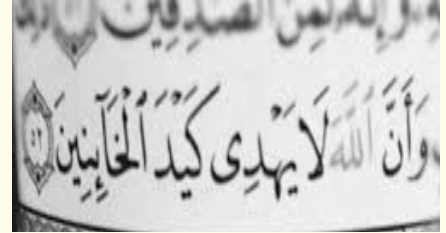 وَإِنَّهُۥ لَمِنَ ٱلصَّٰدِقِينَ
وَأَنَّ ٱللَّهَ لَا يَهْدِى كَيْدَ ٱلْخَآئِنِينَ ٥٢